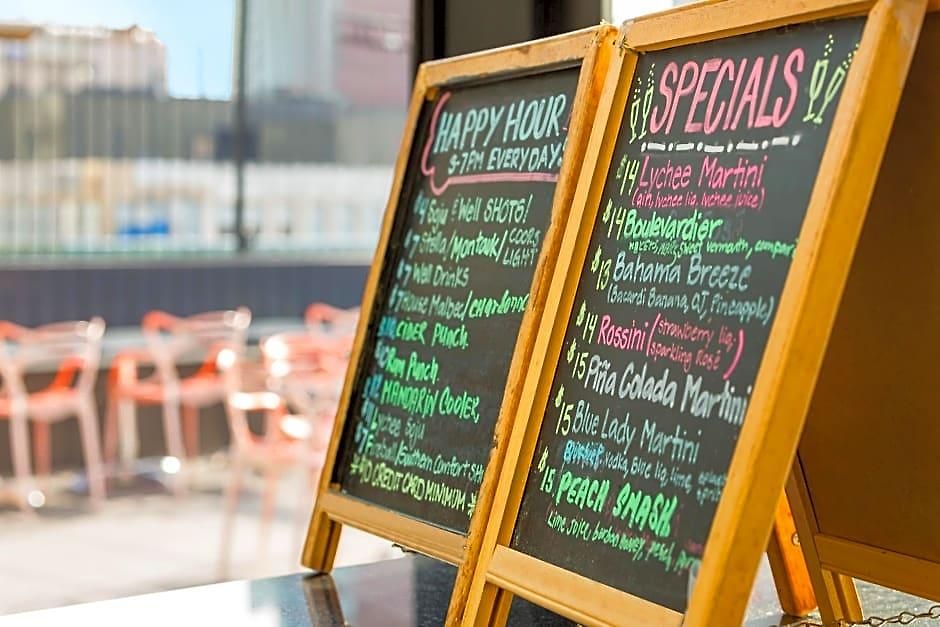 HAPPY HOUR
5-7PM EVERYDAY!
Soju & Well SHOTS!
$7 Stella/Montauk/COORS LIGHT
$7 Well Drinks
$7 House Malbec/Chardonnay
CIDER PUNCH
Rum Punch
MANDARIN COOLER
Lychee Soju
Fireball/Southern Comfort
$10 CREDIT CARD MINIMUM *
SPECIALS
$14 Lychee Martini
(gin, lychee liq, lychee juice)
$14 Boulevardier
sweet vermouth, campari
$13 Bahama Breeze
(Bacardi Banana, OJ, Pineapple)
$14 Rossini (strawberry liq.
sparkling Rosé)
$15 Piña Colada Martini
$15 Blue Lady Martini
vodka, blue liq, lime,
$15 PEACH SMASH
Lime juice, bourbon, honey, peach,